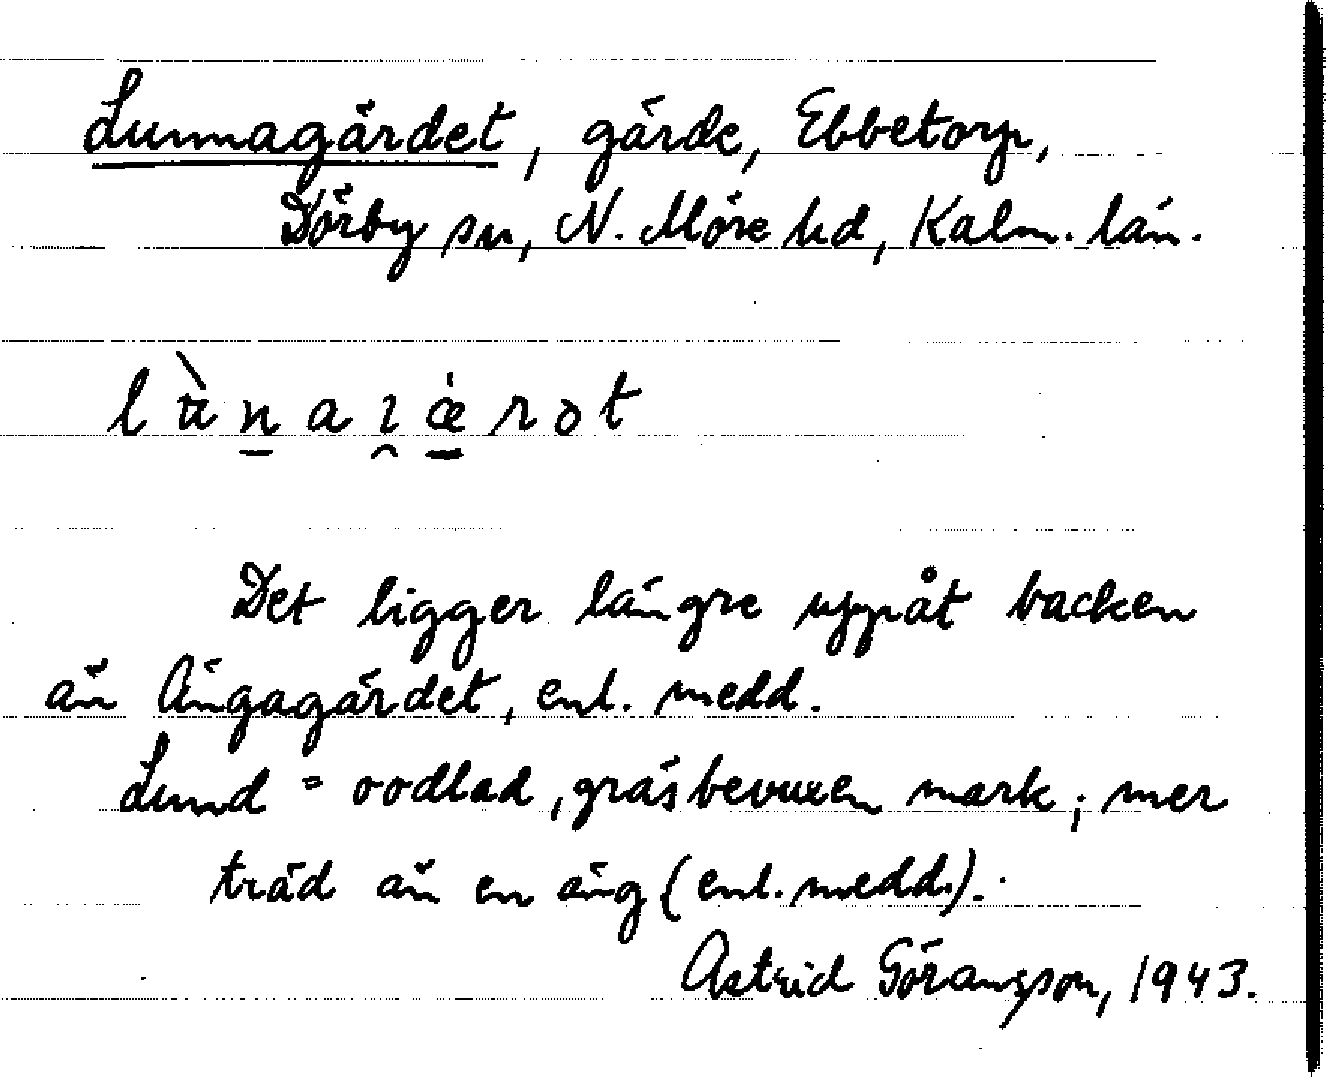 Lunnagärdet, gärde, Ebbetorp,
Dörby sn, N. Möre hd, Kalm. län.
Det ligger längre uppåt backen
än Ängagärdet, enl. medd.
Lund = oodlad, gräsbevuxen mark; mer
träd än en äng (enl. medd.).
Astrid Göransson, 1943.